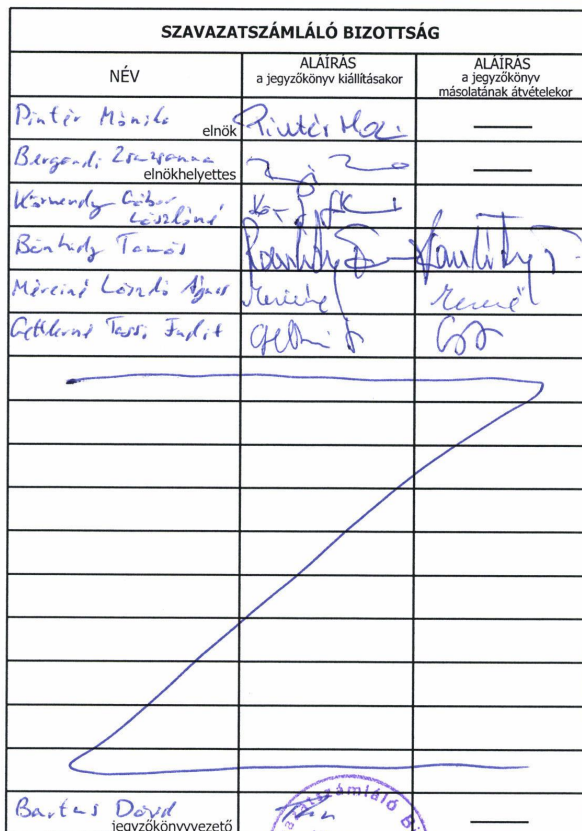 SZAVAZATSZÁMLÁLÓ BIZOTTSÁG
NÉV
ALÁÍRÁS
a jegyzőkönyv kiállításakor
ALÁÍRÁS
a jegyzőkönyv
másolatának átvételekor
Pintér Mónika
elnök
Pintér
Zsuzsanna
elnökhelyettes
Körmendy Gábor
Lászlóné
Bánhidy Tamás
Méreiné László Ágnes
Tassi Judit
Bartus Dávid
jegyzőkönyvvezető
azatszámláló Bi